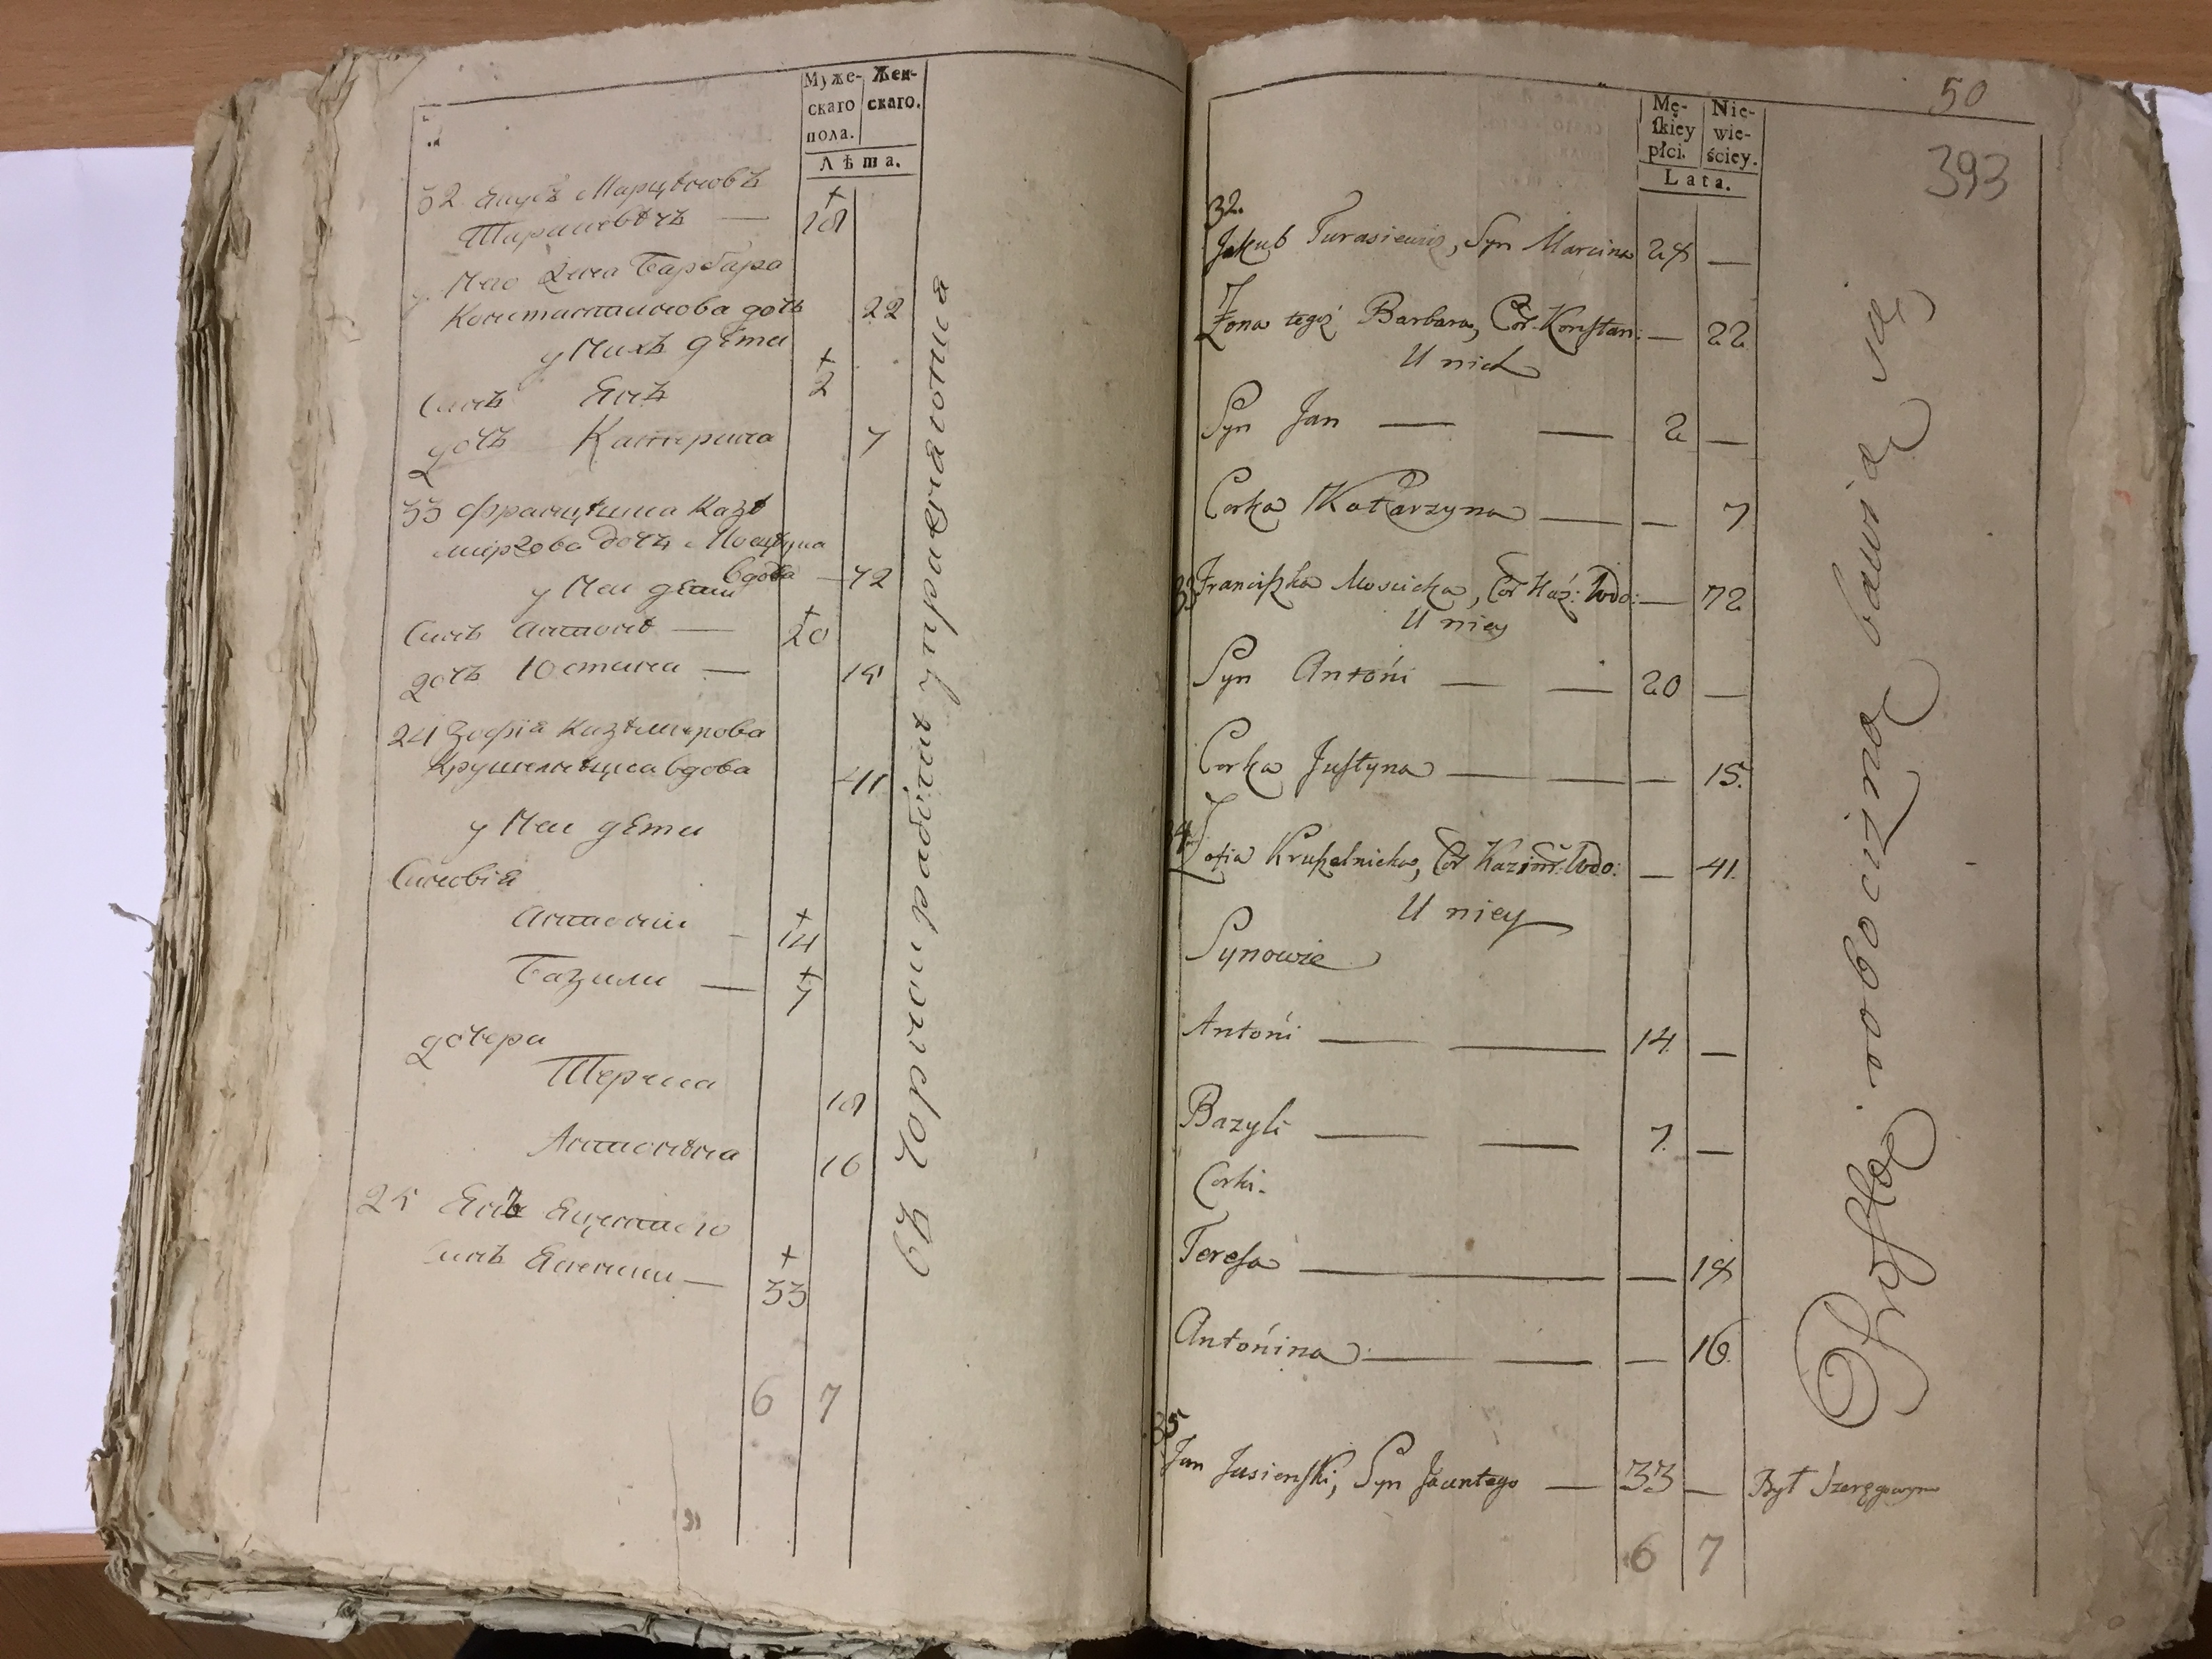 Муже-
скаго
пола.
Жен-
скаго.
Лѣта.
32 Якубъ Марцѣновъ
+
28
Тарасевичъ —
Его Жена Барбара
Константинова дочь 22
у Нихъ дѣти
+
Синъ Янъ 2
дочь Катерина 7
33 Францишка Кази
мирова дочь Мосцицка
вдова — 72
у Неи дѣти
+
Синъ Антони — 20
дочь Юстина — 15
Зофія Казимирова
Крушелницка вдова 41
у Неи дѣти
Синовія
+
Антони — 14
+
Базили — 7
дочери
Тереса 18
Антонина 16
Янъ Яцентаго
+
Синъ Ясенски — 33
6 7
въ Чорной работи упражнаютца
50
393
Mę-
ſkiey
płci.
Nie-
wie-
ściey.
Lata.
32.
Jakub Tarasiewicz, Syn Marcina 28 —
Żona tegoż Barbara, Cór. Konstan: — 22
U nich
Syn Jan — — 2 —
Corka Katarzyna — — 7
33 Franciszka Moscicka, Cór Kaź: Wdo: — 72
U niey
Syn Antoni — — 20 —
Corka Justyna — — — 15.
34 Zofia Kruszelnicka, Cór Kazim: Wdo: — 41.
U niey
Synowie
Antoni — — 14. —
Bazyli — — 7. —
Corki.
Teresa — — — 18
Antonina — — — 16.
35
Jan Jasienski, Syn Jacentego — 33 — Był Szeregowym
6 7
Prostą robocizną bawią się